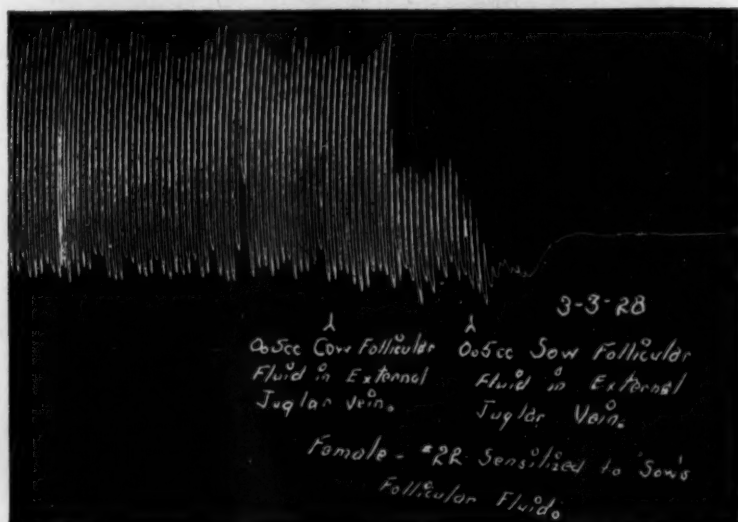 3-3-28
0.5cc Cow Follicular
Fluid in External
Juglar Vein.
0.5cc Sow Follicular
Fluid in External
Juglar Vein.
Female - #2R Sensitized to Sow's
Follicular Fluid.